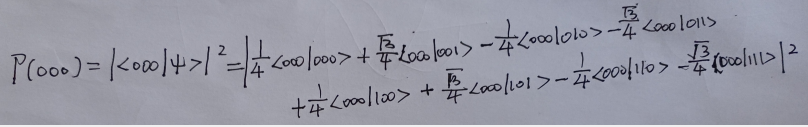 P(000) = |<000|ψ>|² = |1/4 <000|000> + √3/4 <000|001> - 1/4 <000|010> - √3/4 <000|011>
+ 1/4 <000|100> + √3/4 <000|101> - 1/4 <000|110> - √3/4 <000|111>|²